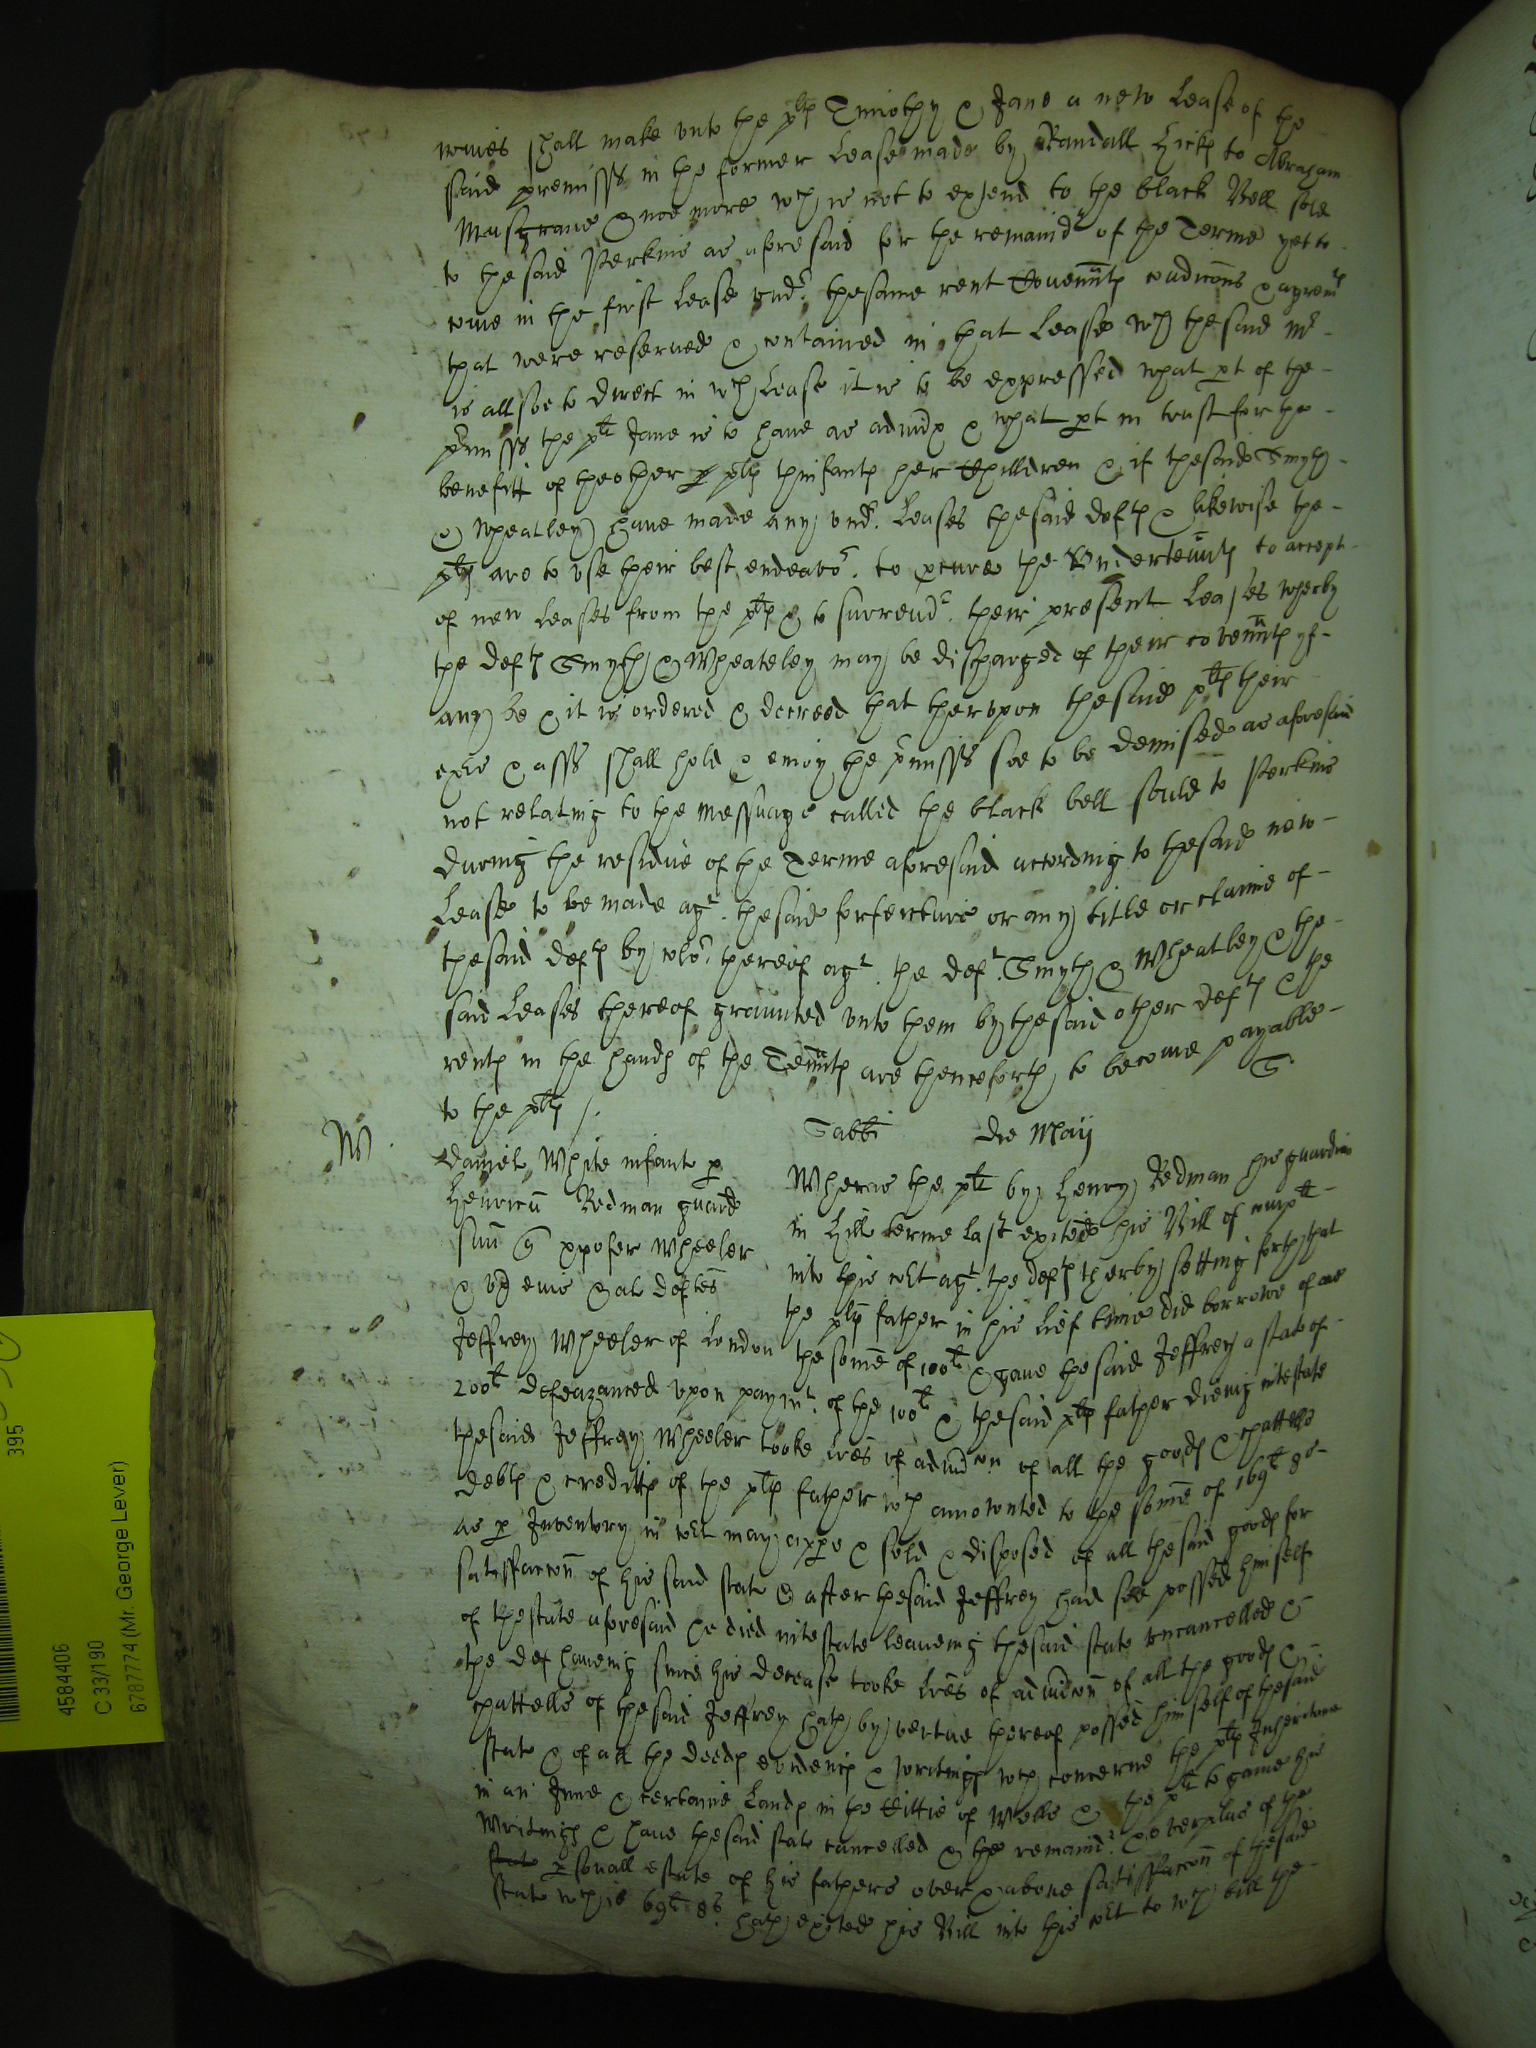 wives shall make vnto the pltes Timothy & Jane a new Lease of the
said premisses in the former Lease made by Randall Hickes to Abraham
Musgrave & noe more wch is not to extend to the black Bell sold
to the said Perkins as aforesaid for the remaindr of the Terme yet to
come in the first Lease vndr the same rent Covennts condicōns & agreemts
that were reserved & contained in that Lease wch the said Mr
is allsoe to direct in wch Lease it is to be expressed what pt of the
prmisses the plt Jane is to have as admix & what pt in trust for the
benefitt of the other plts thinfants her Children & if the said Smyth
& Wheatley have made any vndr Leases the said defts & likewise the
plts are to vse their best endeavor to pcure the Vndertennts to accept
of new Leases from the plts & to surrendr their present Leases wherby
the defts Smyth & Wheateley may be discharged of their covennts yf
any be & it is ordered & decreed that thervpon the said plts their
exrs & asss shall hold & enioy the prmisses soe to be demised as aforesaid
not relating to the messuage called the black bell sould to Perkins
during the residue of the Terme aforesaid according to the said new
Lease to be made agt the said forfeicture or any title or claime of
the said defts by color thereof agt the deft Smyth & Wheatley & the
said Leases thereof graunted vnto them by the said other defts & the
rents in the hands of the Tennts are thenceforth to become payable
to the plts /.
S.
Sabbi die Maij
W
Daniel White infans p
Henricū Redman guard
suū q xpofer Wheeler
& vx eius & al deftes
Wheras the plt by Henry Redman his guardian
in Hill terme last exited his Bill of complt
into this Cort agt the defts therby setting forth that
the plts father in his lief time did borrowe of one
Jeffrey Wheeler of London the some of 100li & gave the said Jeffrey a state of
200li defeazanced vpon paymt of the 100li & the said plts father dieing intestate
the said Jeffrey Wheeler tooke lres of admcōn of all the goods & chattells
debts & creditts of the plts father wch amounted to the some of 169li 8s
as p Inventory in Cort may appe & sold & disposed of all the said goods for
satisfaccōn of his said state & after the said Jeffrey had soe possed himself
of thestate aforesaid he died intestate leaveing the said state vncancelled &
the def haveing since his decease tooke lres of admcōn of all the goods &
chattells of the said Jeffrey hath by vertue thereof possed himself of the said
state & of all the deeds evidencs & writings wch concerne the plts Inheritance
in an Inne & certaine Lands in the Cittie of Wells & the plt to gaine his
writings & have the said state cancelled & the remaindr & overplus of the
state psonall estate of his fathers over & above satisfaccōn of the said
state wch is 69li 8s hath exited his Bill into this Cort to wch bill the
395
4584406
C 33/190
6787774 (Mr. George Lever)